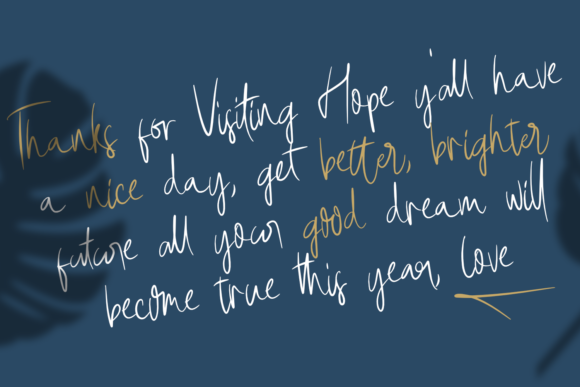 Thanks for Visiting Hope y'all have
a nice day, get better, brighter
future all your good dream will
become true this year, love